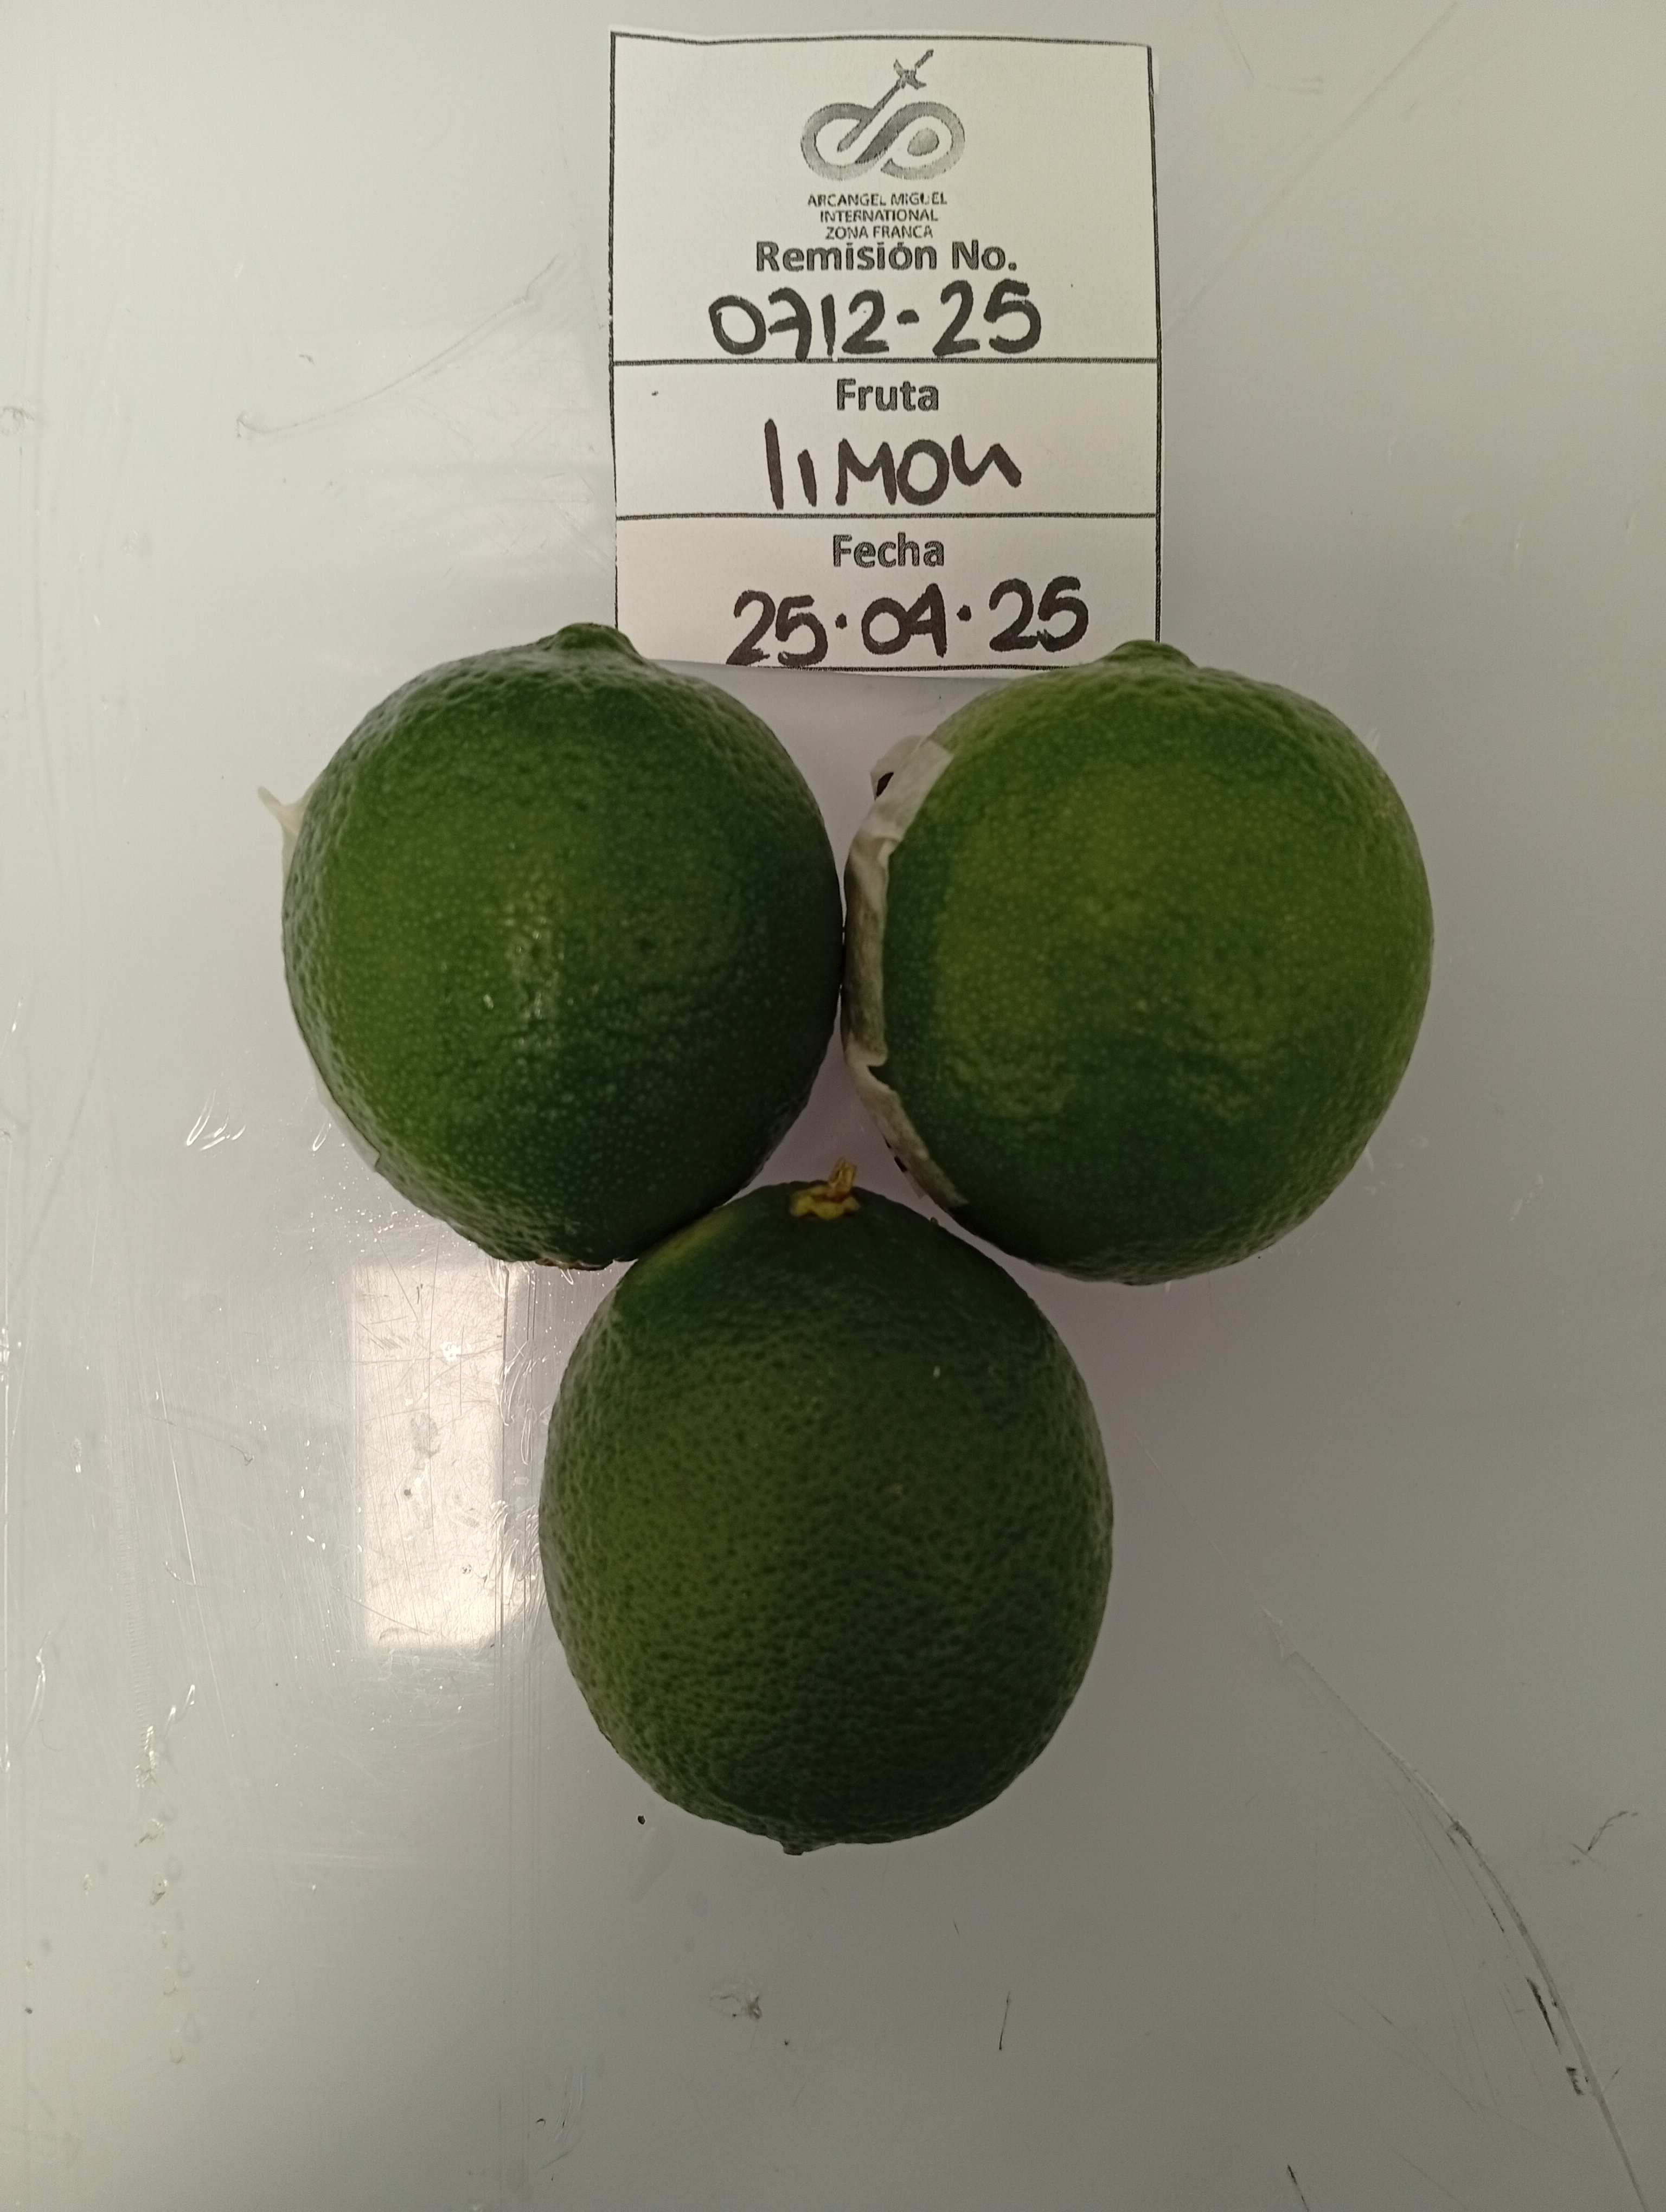 ARCANGEL MIGUEL
INTERNATIONAL
ZONA FRANCA
Remisión No.
0712-25
Fruta
limon
Fecha
25·04·25